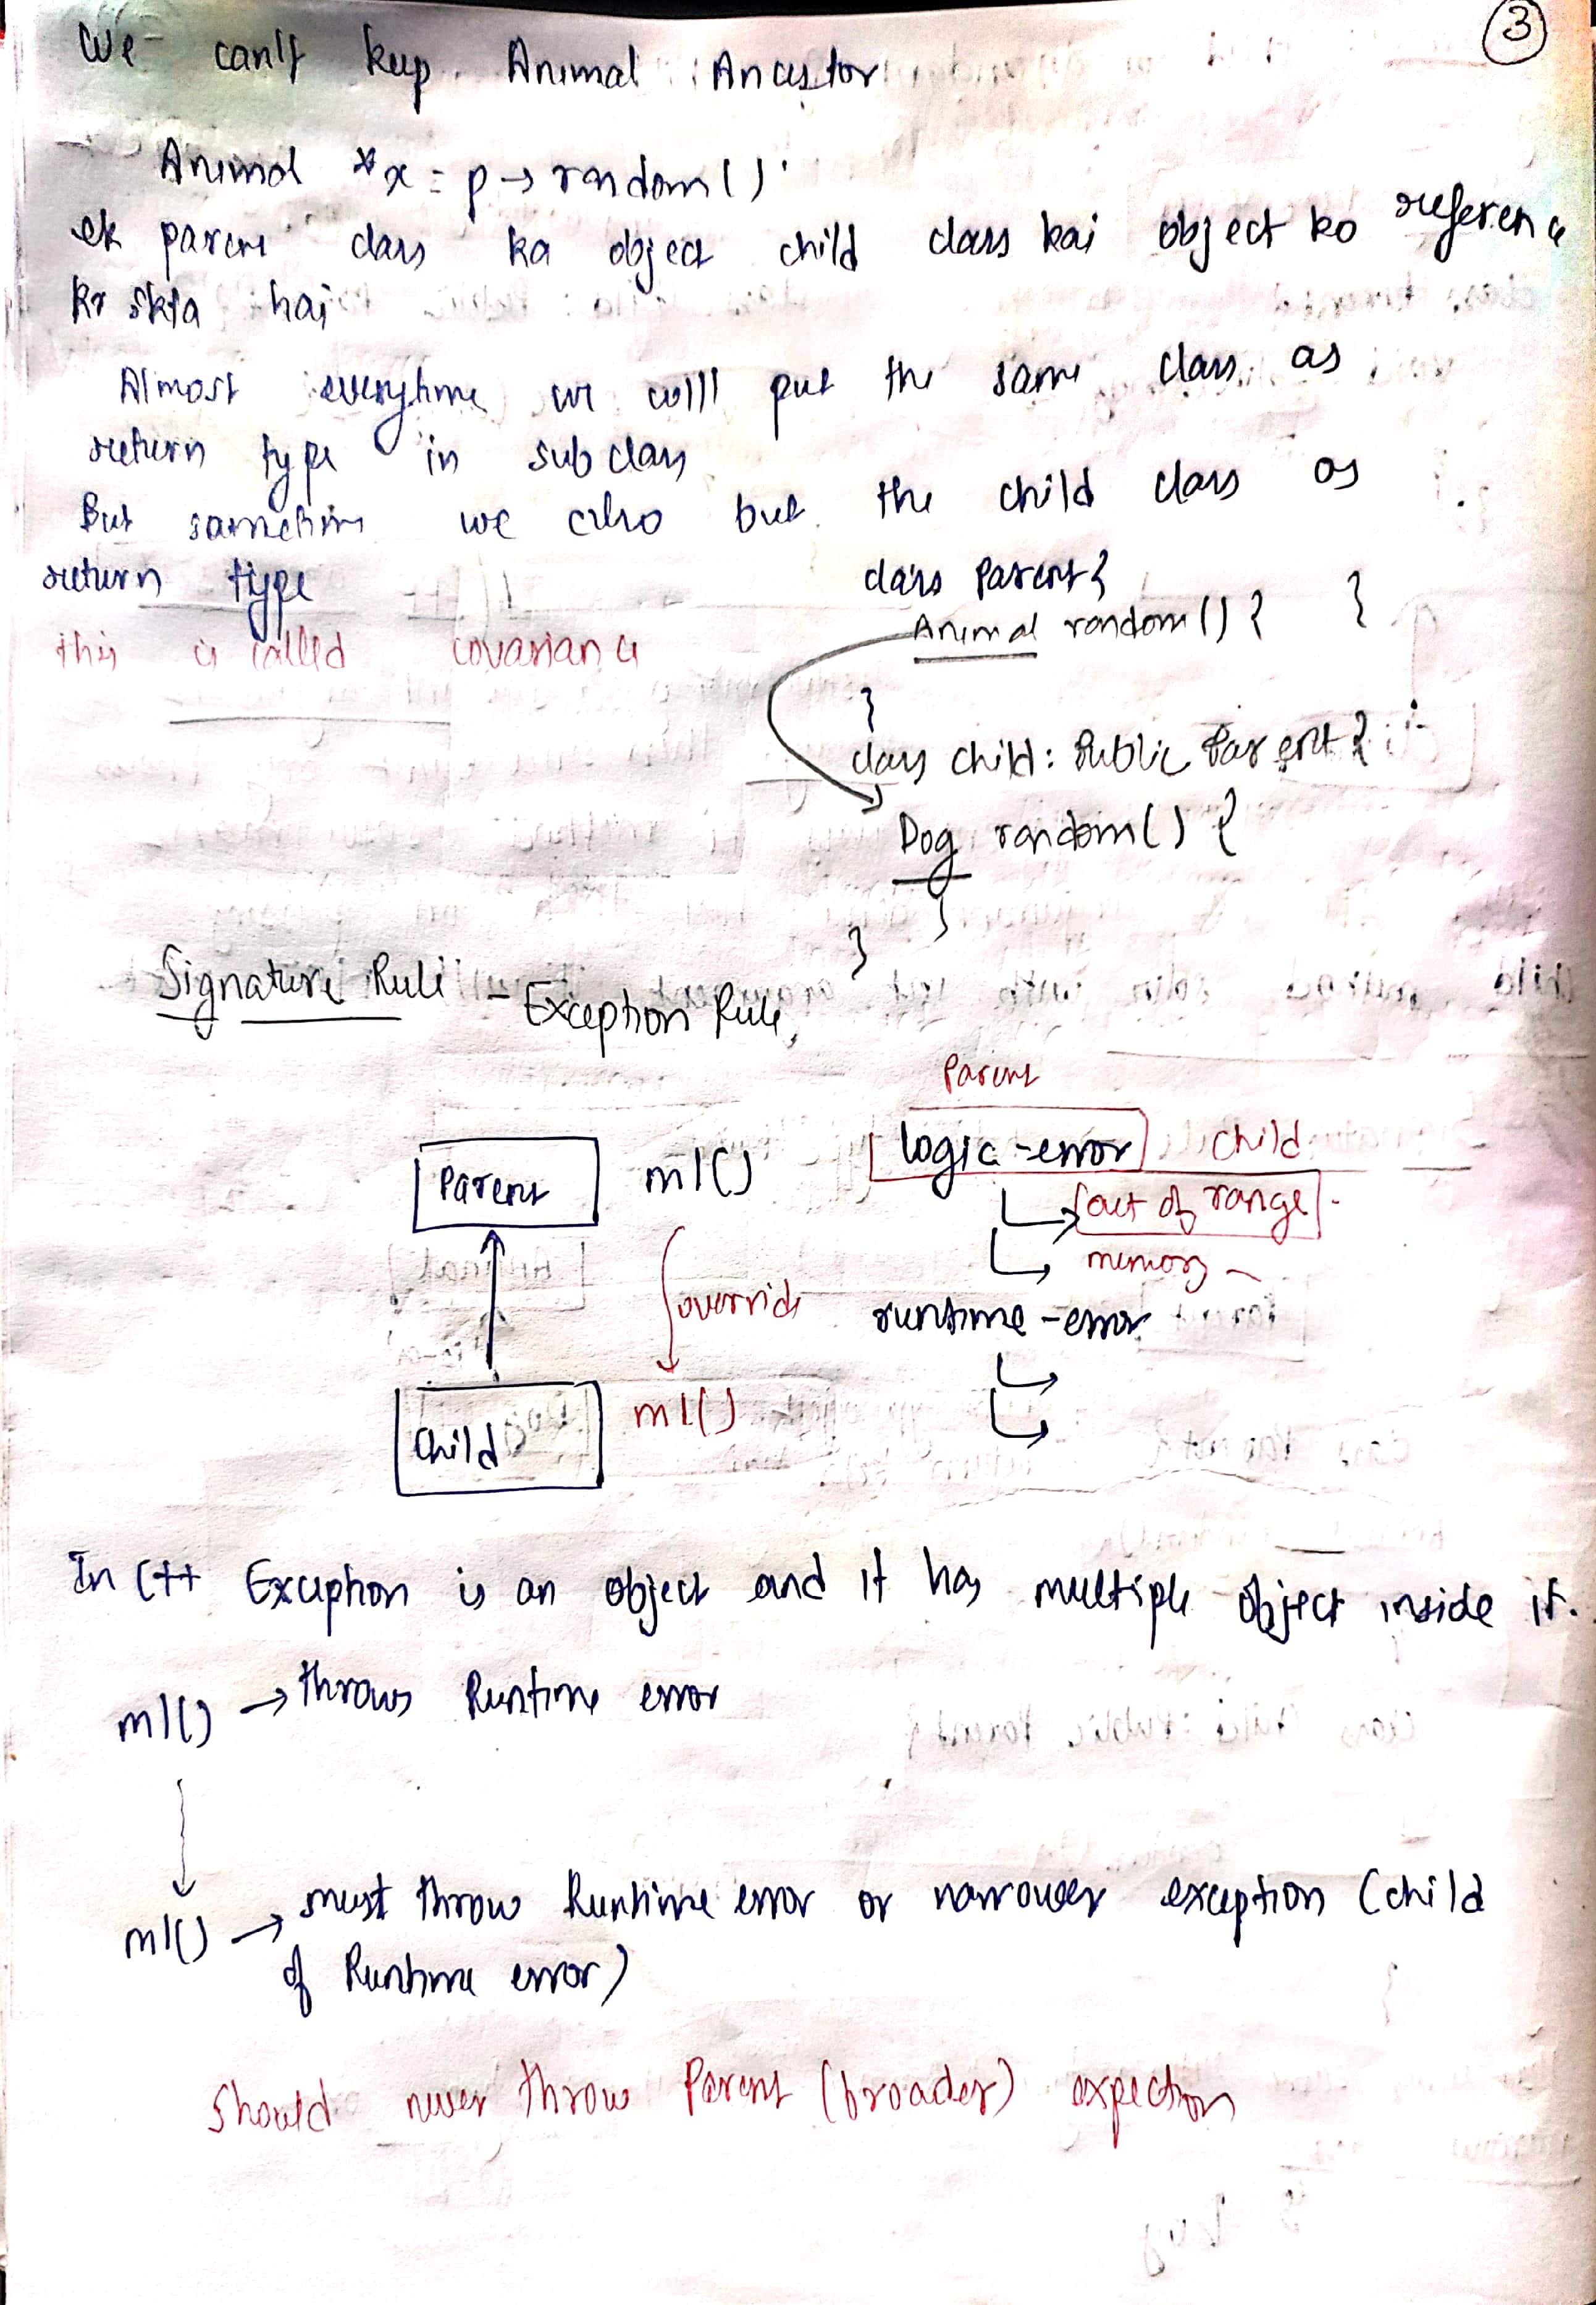 3
We can't keep Animal Ancestor
Animal *x = p → random()
ek parent class ka object child class kai object ko reference
kr skta hai
Almost everytime we will put the same class as
return type in subclass
But sometime we also but the child class as
return type
this is called covariance
class Parent {
Animal random() { }
}
class child : Public Parent {
Dog random() {
}
}
Signature Rule - Exception Rule
Parent
logic-error child
out of range
memory
runtime-error
Parent m1()
override
Child m1()
In C++ Exception is an object and it has multiple object inside it.
m1() → throws Runtime error
m1() → must throw Runtime error or narrower exception (child
of Runtime error)
Should never throw Parent (broader) expection